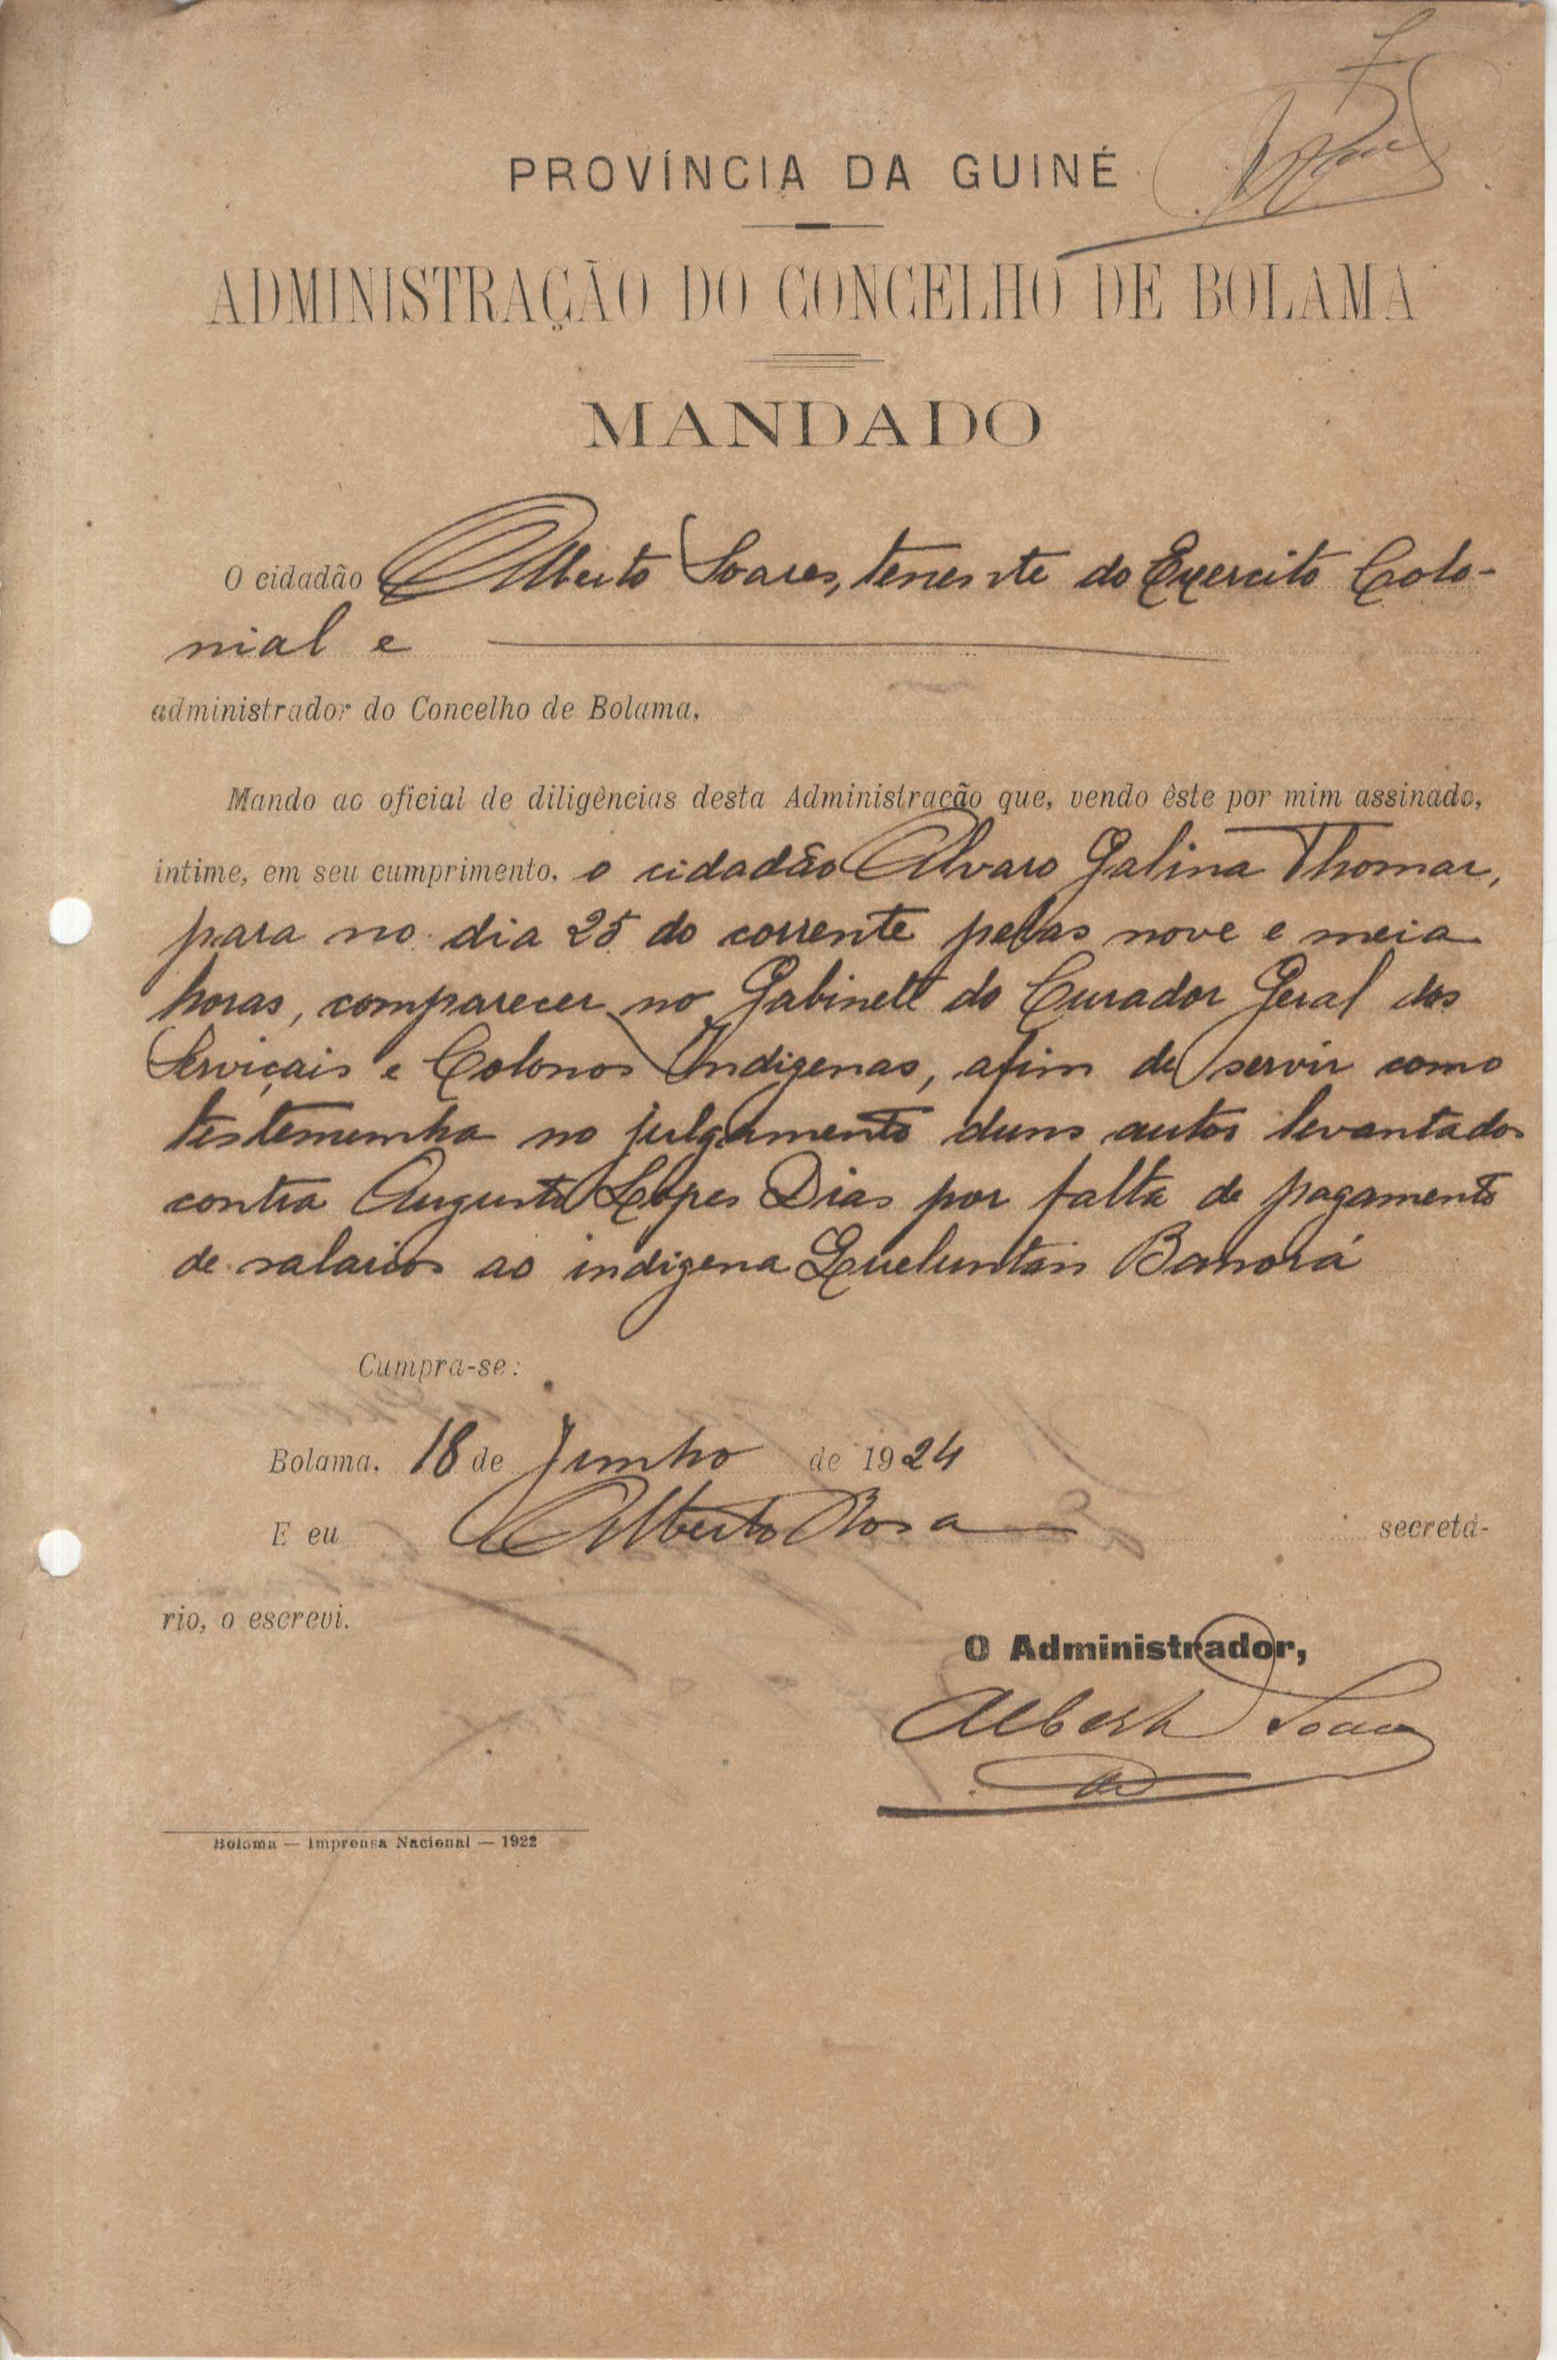 PROVÍNCIA DA GUINÉ
ADMINISTRAÇÃO DO CONCELHO DE BOLAMA
MANDADO
O cidadão Alberto Soares, tenente do Exercito Colo-
nial e
administrador do Concelho de Bolama,
Mando ao oficial de diligências desta Administração que, vendo êste por mim assinado,
intime, em seu cumprimento, o cidadão Alvaro Galina Thomar,
para no dia 25 do corrente pelas nove e meia
horas, comparecer no Gabinete do Curador Geral dos
Serviçais e Colonos Indigenas, afim de servir como
testemunha no julgamento duns autos levantados
contra Augusto Lopes Dias por falta de pagamento
de salarios ao indigena Banorá
Cumpra-se:
Bolama, 18 de Junho de 1924
E eu Alberto Rosa secretá-
rio, o escrevi.
O Administrador,
Alberto Soares
Bolama — Imprensa Nacional — 1922